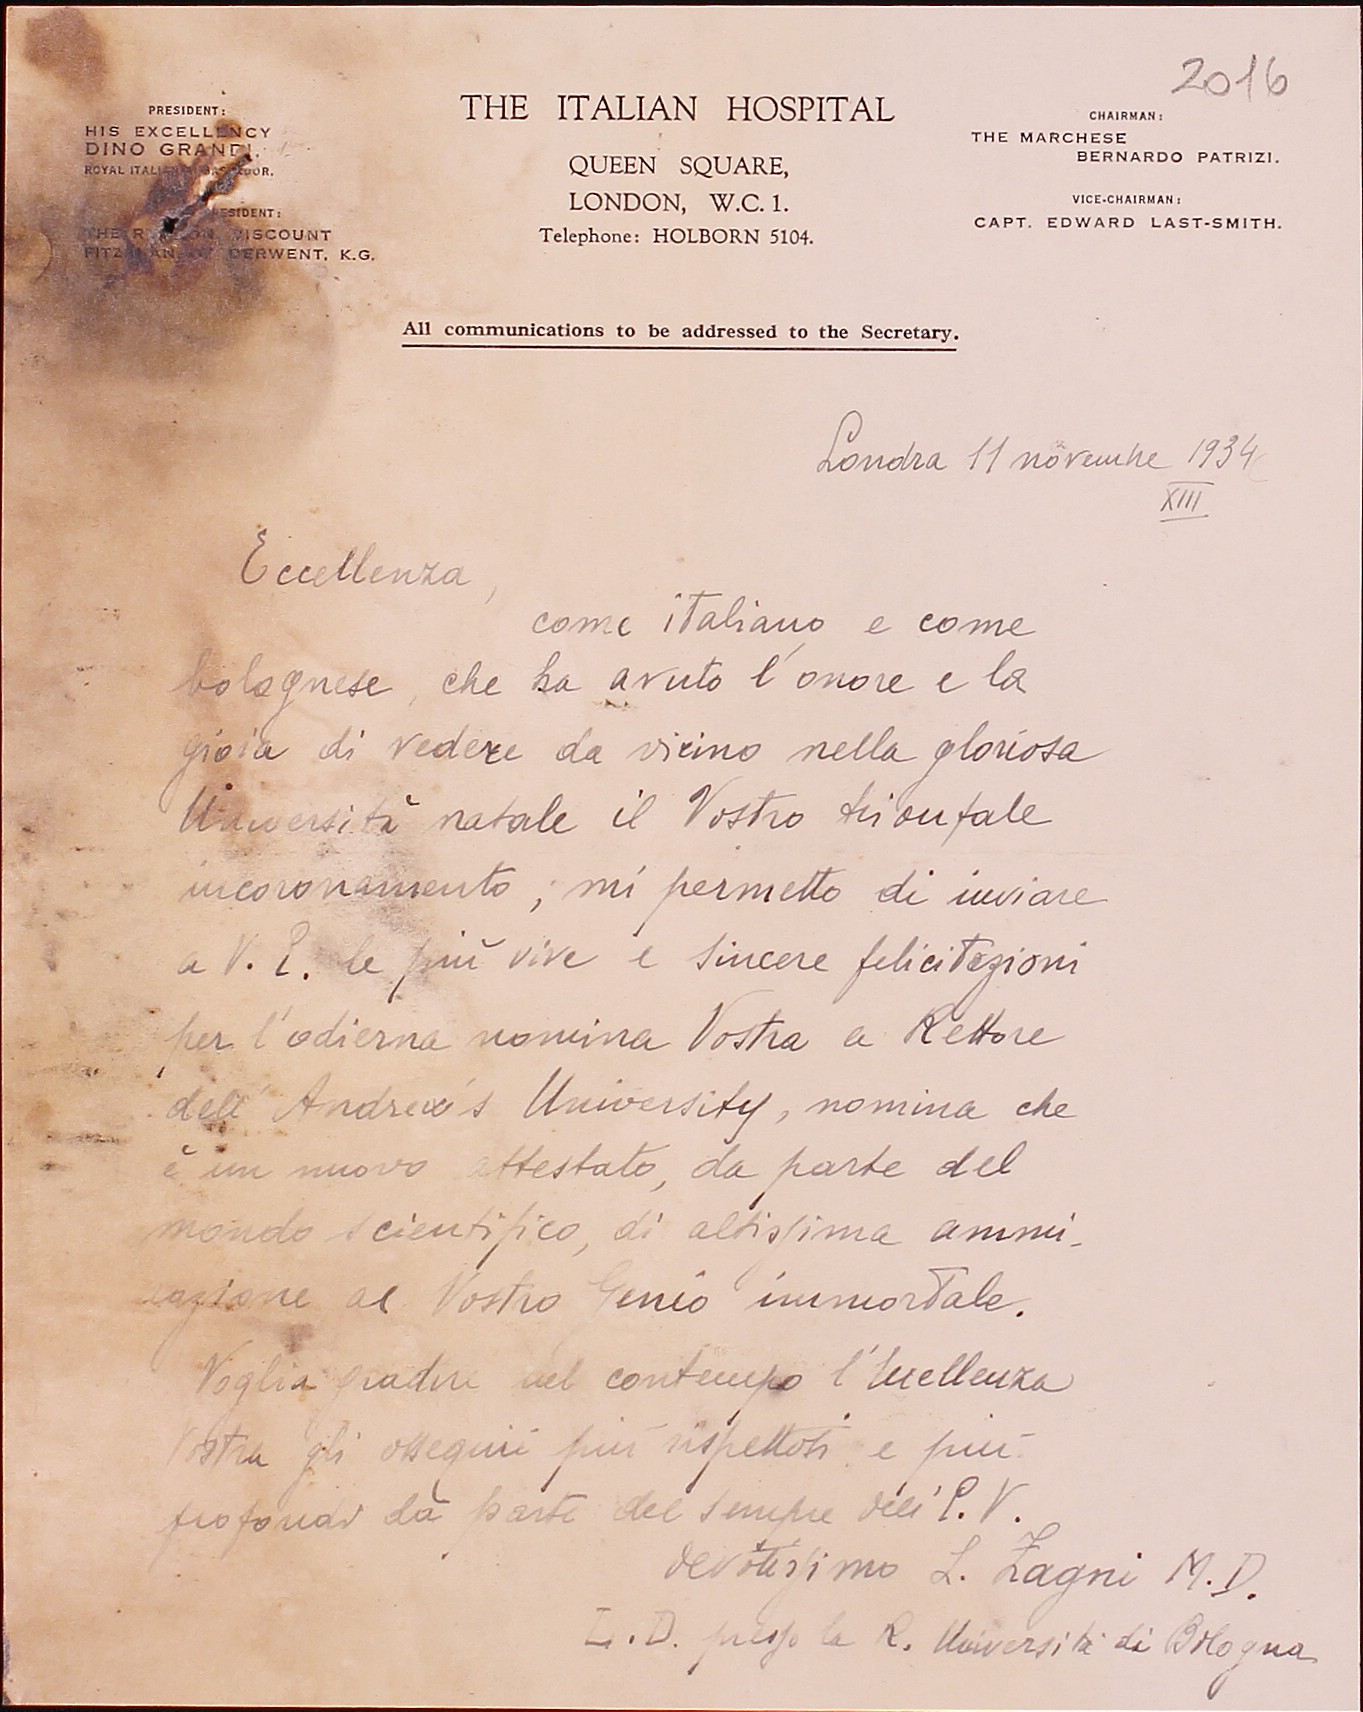 2016
PRESIDENT:
HIS EXCELLENCY
DINO GRANDI.
ROYAL ITALIAN AMBASSADOR.
THE ITALIAN HOSPITAL
QUEEN SQUARE,
LONDON, W.C. 1.
Telephone: HOLBORN 5104.
CHAIRMAN:
THE MARCHESE
BERNARDO PATRIZI.
VICE-CHAIRMAN:
CAPT. EDWARD LAST-SMITH.
PRESIDENT:
VISCOUNT
DERWENT, K.G.
All communications to be addressed to the Secretary.
Londra 11 novembre 1934
XIII
Eccellenza,
come italiano e come
bolognese, che ha avuto l'onore e la
gioia di vedere da vicino nella gloriosa
Università natale il Vostro trionfale
incoronamento, mi permetto di inviare
a V. E. le più vive e sincere felicitazioni
per l'odierna nomina Vostra a Rettore
dell'Andrew's University, nomina che
è un nuovo attestato, da parte del
mondo scientifico, di altissima ammi-
razione al Vostro Genio immortale.
Voglia gradire nel contempo l'Eccellenza
Vostra gli ossequii più rispettosi e più
profondi da parte del sempre dell'E. V.
devotissimo L. Zagni M.D.
L.D. presso la R. Università di Bologna